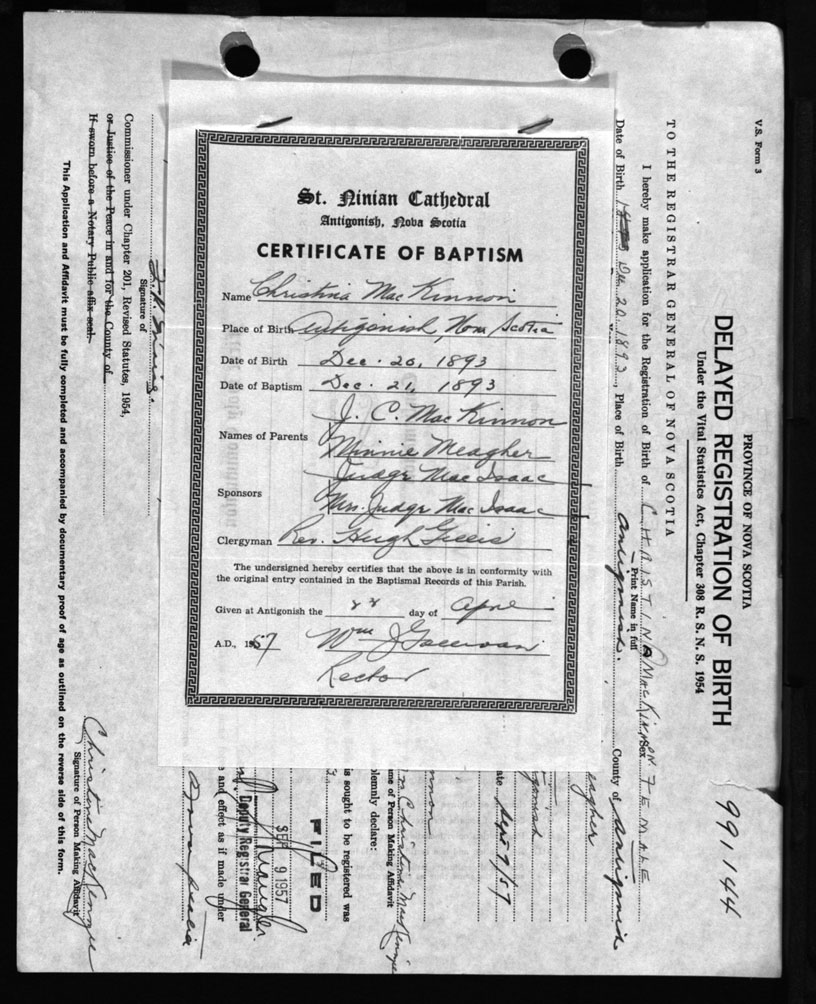 St. Ninian Cathedral
Antigonish, Nova Scotia
CERTIFICATE OF BAPTISM
Name Christina MacKinnon
Place of Birth Antigonish, Nova Scotia
Date of Birth Dec. 20, 1893
Date of Baptism Dec. 21, 1893
Names of Parents J. C. MacKinnon
Minnie Meagher
Sponsors Judge MacIsaac
Mrs. Judge MacIsaac
Clergyman Rev. Hugh Gillis
The undersigned hereby certifies that the above is in conformity with
the original entry contained in the Baptismal Records of this Parish.
Given at Antigonish the 22 day of April
A.D., 1957 Wm J
Rector
V.S. Form 3
PROVINCE OF NOVA SCOTIA
DELAYED REGISTRATION OF BIRTH
Under the Vital Statistics Act, Chapter 308 R. S. N. S. 1954
991144
TO THE REGISTRAR GENERAL OF NOVA SCOTIA
I hereby make application for the Registration of Birth of CHRISTINA MacKINNON. Sex FEMALE
Print Name in full
Date of Birth Dec 20, 1893, Place of Birth Antigonish. County of Antigonish
eagher
ate Sept 9/57
nnon
me of Person Making Affidavit
Christina MacKenzie
olemnly declare:
is sought to be registered was
FILED
SEP 9 1957
Deputy Registrar General
e and effect as if made under
Nova Scotia
Signature of
Commissioner under Chapter 201, Revised Statutes, 1954,
or Justice of the Peace in and for the County of
If sworn before a Notary Public affix seal.
Christine MacKenzie
Signature of Person Making Affidavit
This Application and Affidavit must be fully completed and accompanied by documentary proof of age as outlined on the reverse side of this form.